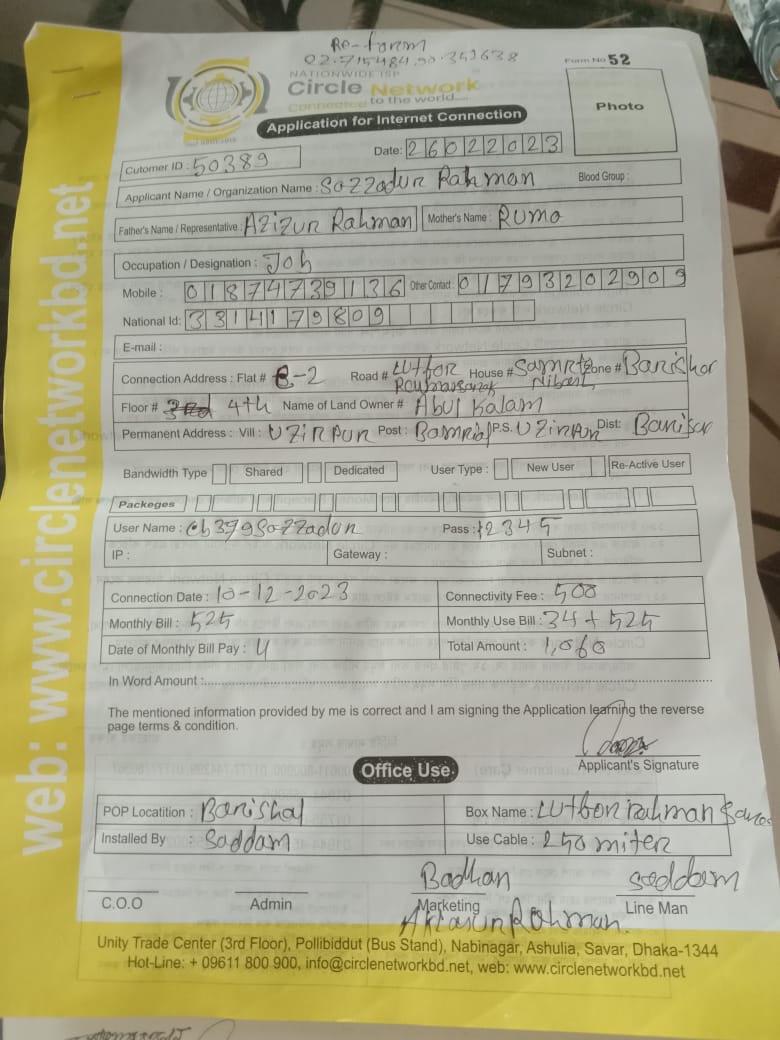 Re-form
02.715484.90.351638
Form No 52
NATIONWIDE ISP
Circle Network
Connected to the world....
Application for Internet Connection
Photo
Date: 26022023
Cutomer ID : 50389
Applicant Name / Organization Name : Sazzadur Rahman Blood Group :
Father's Name / Representative : Azizur Rahman Mother's Name : Ruma
Occupation / Designation : Job
Mobile : 01874739136 Other Contact : 01793202909
National Id: 3314179809
E-mail :
Connection Address : Flat # -2 Road # Lutfor House # Zone # Barishor
Floor # 3rd 4th Name of Land Owner # Abul Kalam
Permanent Address : Vill : Uzirpur Post : P.S. Uzirpur Dist: Barisar
Bandwidth Type Shared Dedicated User Type : New User Re-Active User
Packeges
User Name : cb379sazzadur Pass : 12345
IP : Gateway : Subnet :
Connection Date : 10-12-2023 Connectivity Fee : 500
Monthly Bill : 525 Monthly Use Bill : 34 + 525
Date of Monthly Bill Pay : 4 Total Amount : 1,060
In Word Amount :
The mentioned information provided by me is correct and I am signing the Application learning the reverse
page terms & condition.
Applicant's Signature
Office Use.
POP Locatition : Barishal Box Name : Lutfor rahman
Installed By : Saddam Use Cable : 250 miter
Badhan saddam
C.O.O Admin Marketing Line Man
Rahman.
Unity Trade Center (3rd Floor), Pollibiddut (Bus Stand), Nabinagar, Ashulia, Savar, Dhaka-1344
Hot-Line: + 09611 800 900, info@circlenetworkbd.net, web: www.circlenetworkbd.net
web: www.circlenetworkbd.net